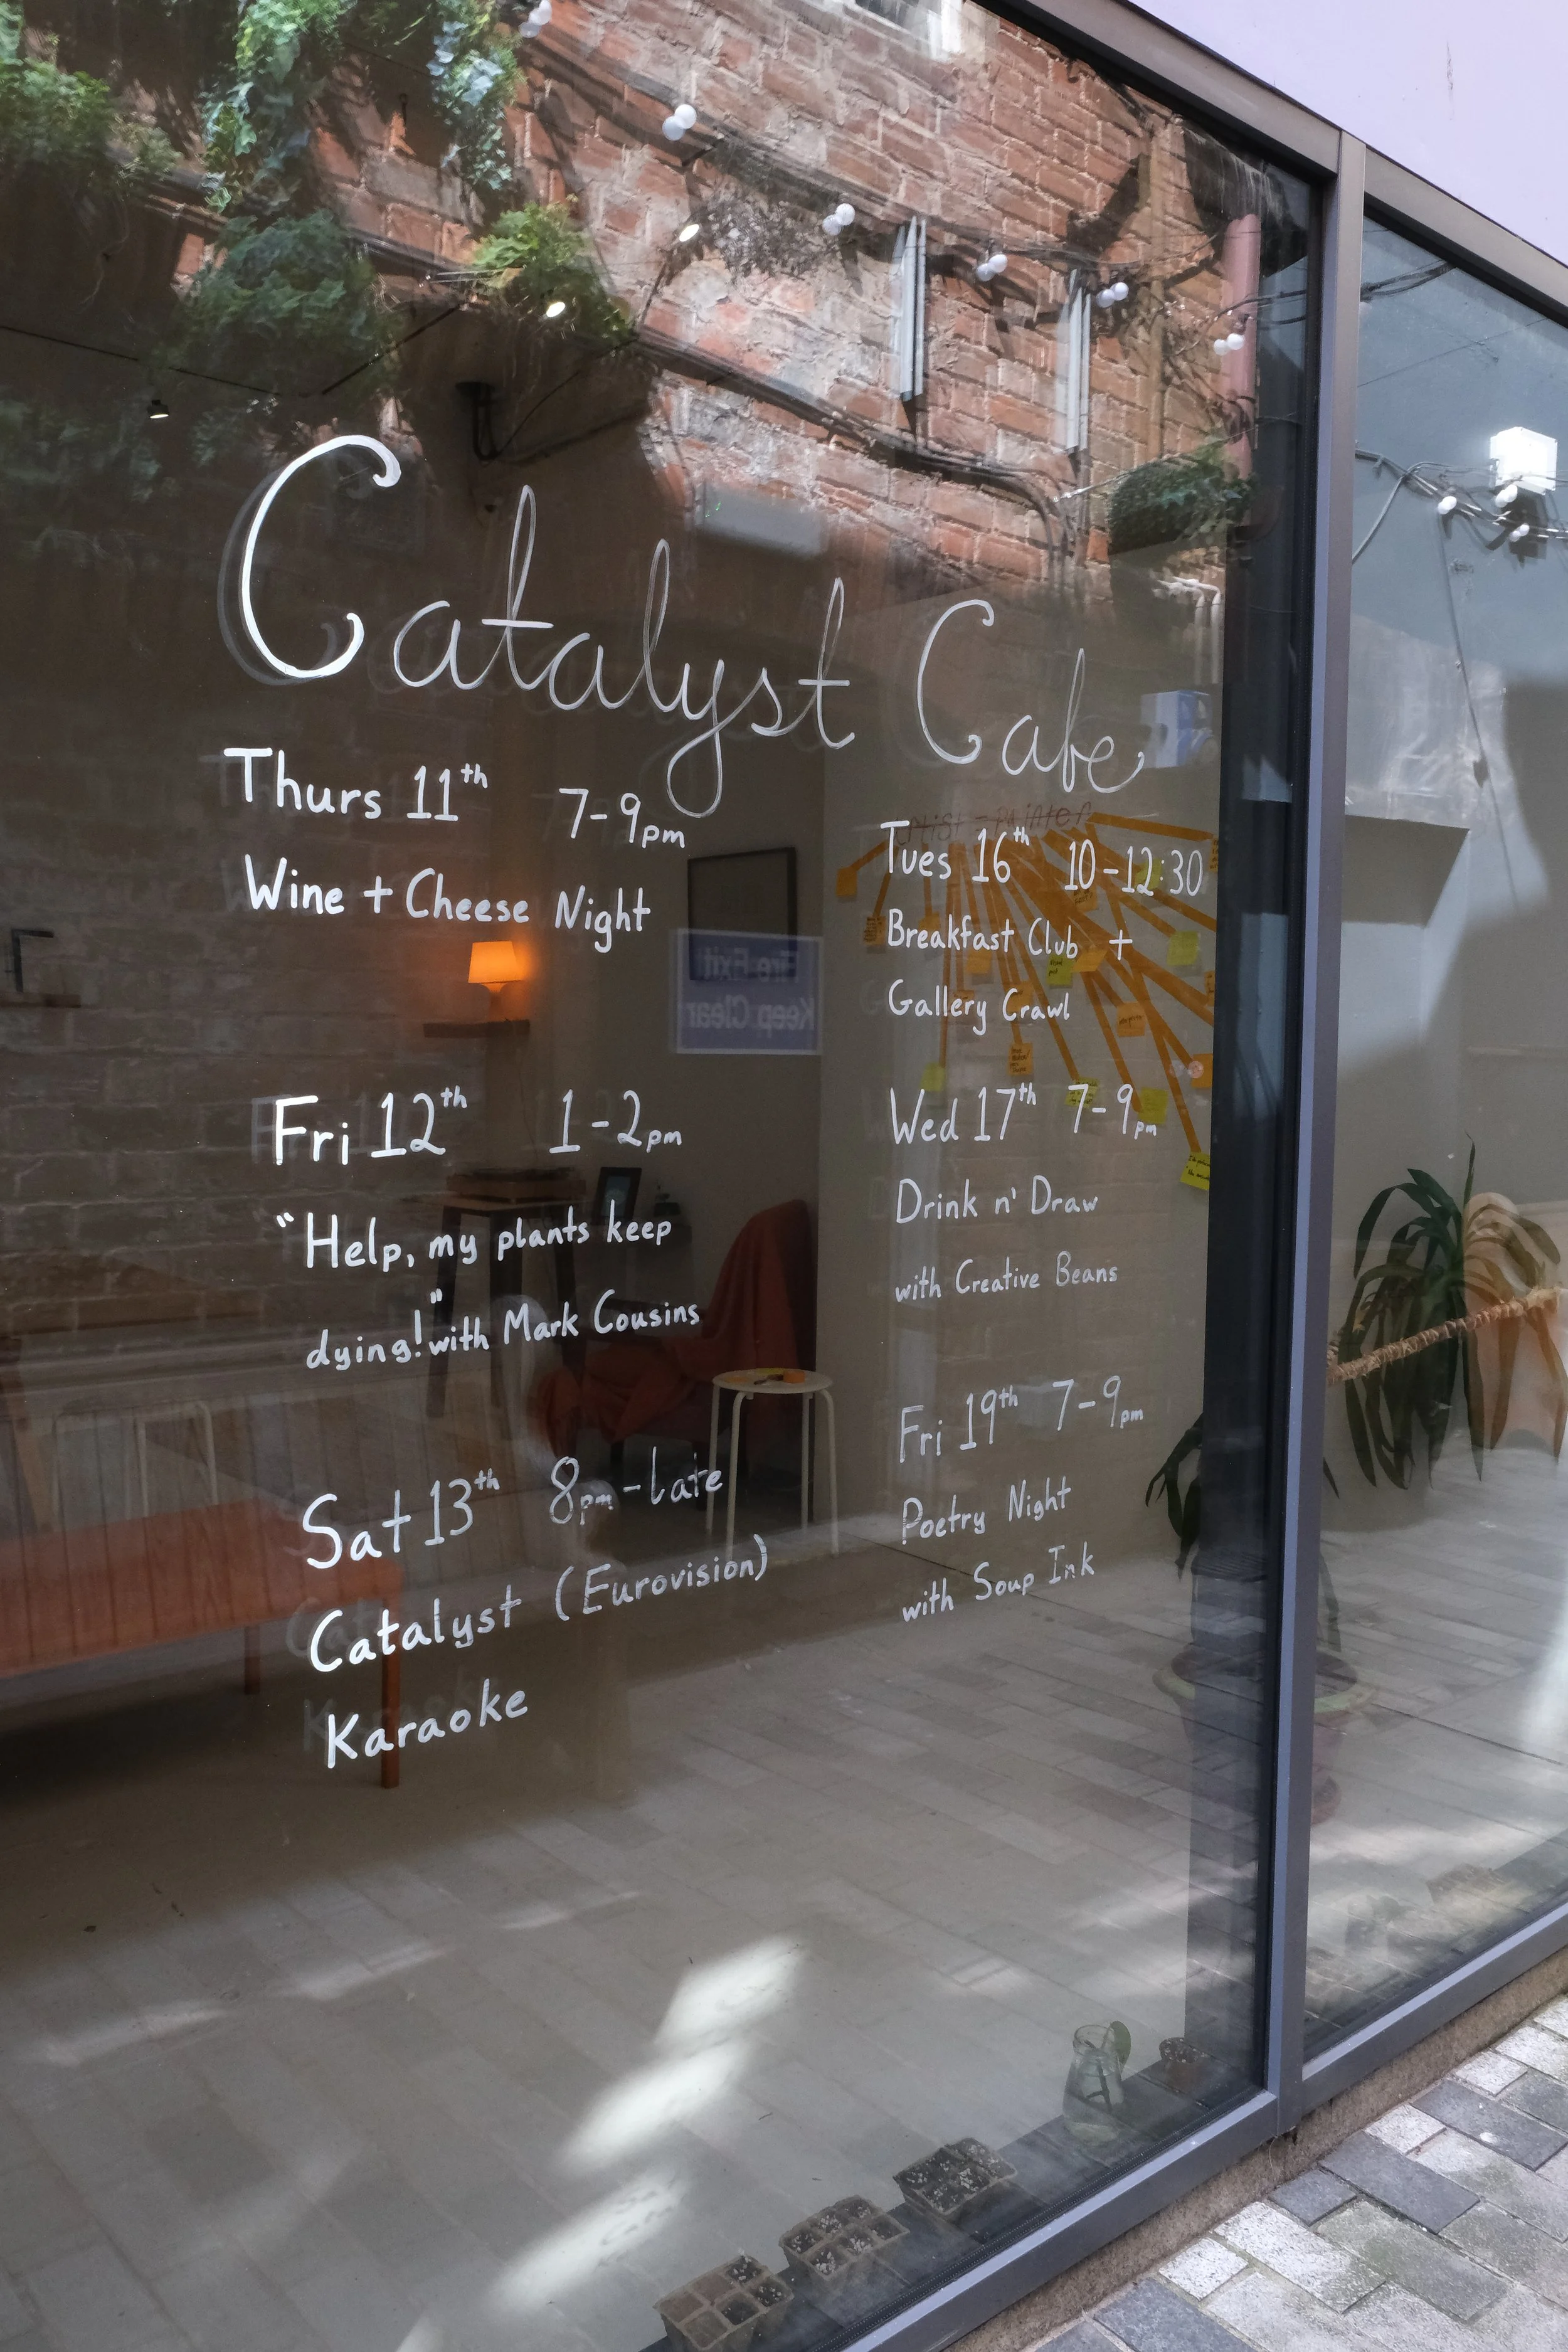 Catalyst Cafe
Thurs 11th 7-9pm
Wine + Cheese Night
Fri 12th 1-2pm
"Help, my plants keep
dying!" with Mark Cousins
Sat 13th 8pm-late
Catalyst (Eurovision)
Karaoke
Tues 16th 10-12:30
Breakfast Club +
Gallery Crawl
Wed 17th 7-9pm
Drink n' Draw
with Creative Beans
Fri 19th 7-9pm
Poetry Night
with Soup Ink
Fire Exit!
Keep Clear